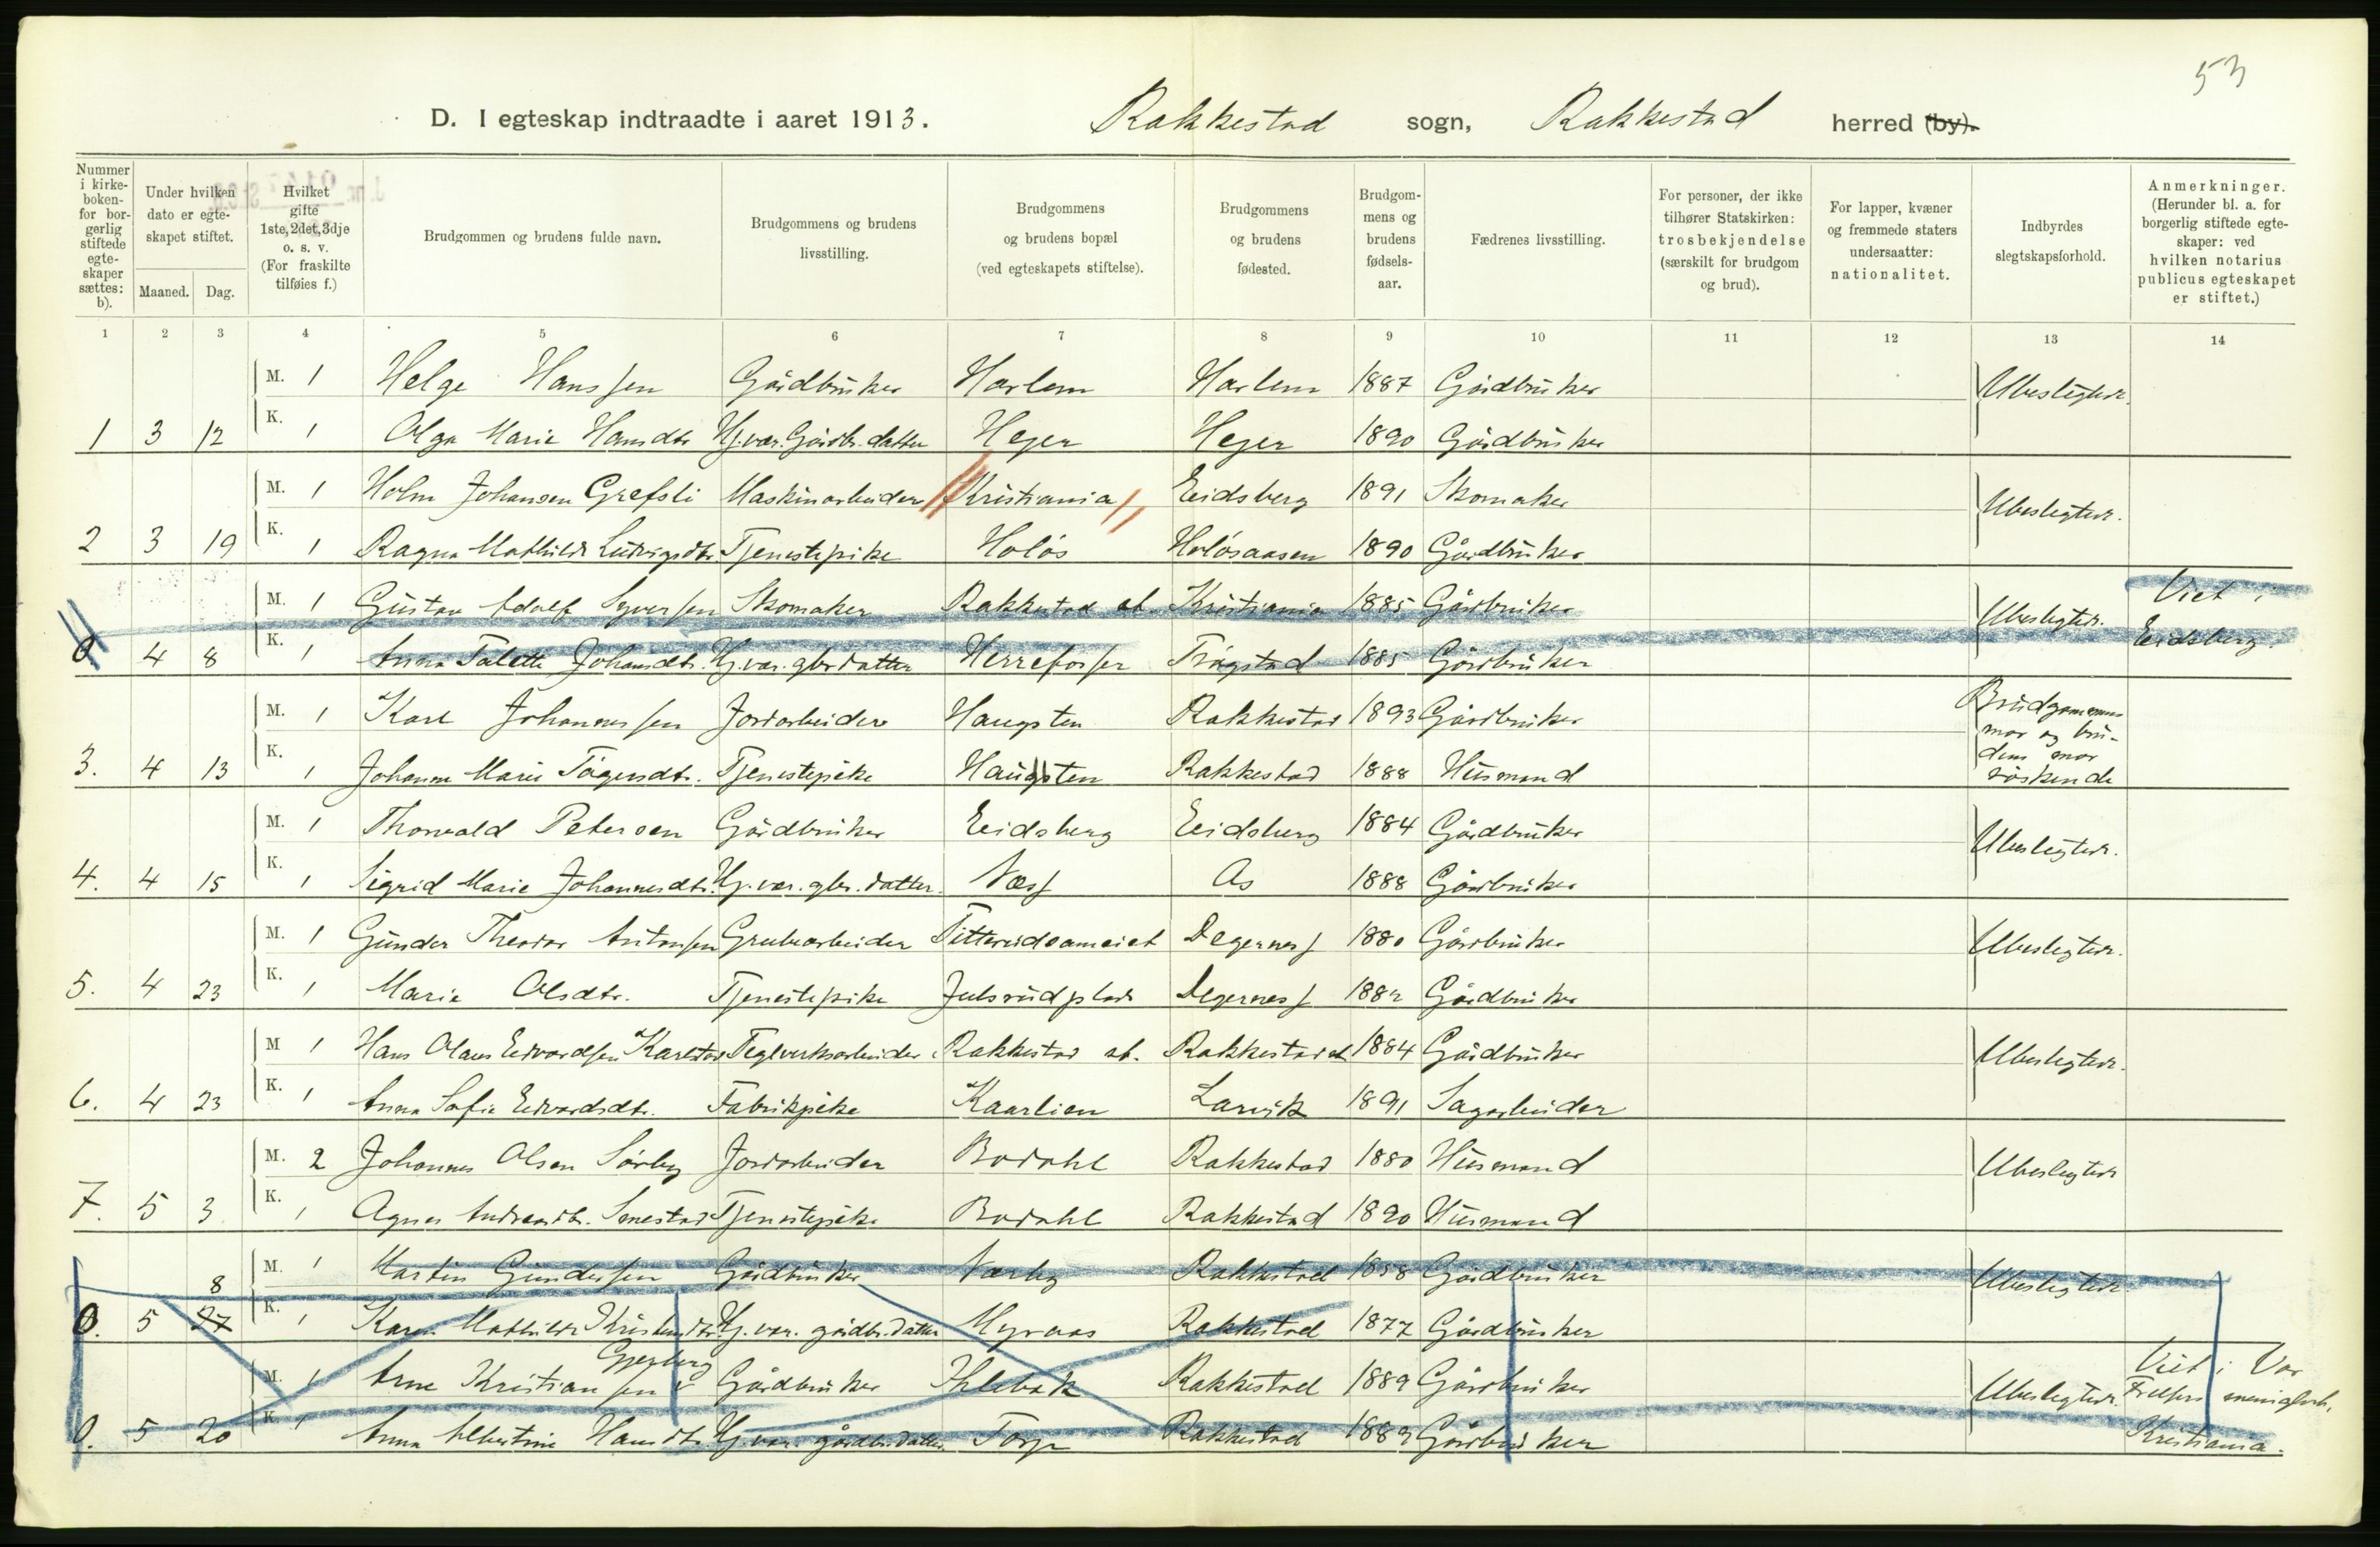 53
D. I egteskap indtraadte i aaret 1913. Rakkestad sogn, Rakkestad herred (by).
Nummer i kirkeboken- for borgerlig stiftede egteskaper sættes: b).
Under hvilken dato er egteskapet stiftet.
Maaned. Dag.
Hvilket gifte 1ste, 2det, 3dje o. s. v. (For fraskilte tilføies f.)
Brudgommen og brudens fulde navn.
Brudgommens og brudens livsstilling.
Brudgommens og brudens bopæl (ved egteskapets stiftelse).
Brudgommens og brudens fødested.
Brudgommens og brudens fødselsaar.
Fædrenes livsstilling.
For personer, der ikke tilhører Statskirken: trosbekjendelse (særskilt for brudgom og brud).
For lapper, kvæner og fremmede staters undersaatter: nationalitet.
Indbyrdes slegtskapsforhold.
Anmerkninger. (Herunder bl. a. for borgerlig stiftede egteskaper: ved hvilken notarius publicus egteskapet er stiftet.)
1 2 3 4 5 6 7 8 9 10 11 12 13 14
M. 1 Helge Hanssen Gårdbruker Harlem Harlem 1887 Gårdbruker Ubeslegtede.
1 3 12 K. 1 Olga Marie Hansdtr Hj.vær. Gårdbr. datter Heger Heger 1890 Gårdbruker
M. 1 Holm Johansen Grefsli Maskinarbeider Kristiania Eidsberg 1891 Skomaker Ubeslegtede.
2 3 19 K. 1 Ragna Mathilde Ludvigsdtr. Tjenestepike Holøs Holøsaasen 1890 Gårdbruker
M. 1 Gustav Adolf Syversen Skomaker Rakkestad st. Kristiania 1885 Gårdbruker Ubeslegtede. Viet i
0 4 8 K. 1 Anna Talette Johansdtr. Hj.vær. gbr datter Herrefosser Trøgstad 1885 Gårdbruker Eidsberg.
M. 1 Karl Johannessen Jordarbeider Haugsten Rakkestad 1893 Gårdbruker Brudgommens mor og brudens mor søskende
3. 4 13 K. 1 Johanne Marie Tøgersdtr. Tjenestepike Haugsten Rakkestad 1888 Husmand
M. 1 Thorvald Petersen Gårdbruker Eidsberg Eidsberg 1884 Gårdbruker Ubeslegtede.
4. 4 15 K. 1 Sigrid Marie Johannesdtr. Hj.vær. gbr. datter. Næss As 1888 Gårdbruker
M. 1 Gunder Theodor Antonsen Grubearbeider Degerness 1880 Gårdbruker Ubeslegtede.
5. 4 23 K. 1 Marie Olsdtr. Tjenestepike Julsrudplads Degerness 1882 Gårdbruker
M 1 Hans Olaus Edvardsen Karlstad Teglverksarbeider Rakkestad st. Rakkestad st 1884 Gårdbruker Ubeslegtede.
6. 4 23 K. 1 Anna Sofie Edvardsdtr. Fabrikpike Kaarlien Larvik 1891 Sagarbeider
M. 2 Johannes Olsen Sørby Jordarbeider Bodahl Rakkestad 1880 Husmand Ubeslegtede
7. 5 3 K. 1 Agnes Andreasdtr. Tjenestepike Bodahl Rakkestad 1890 Husmand
M. 1 Martin Gundersen Gårdbruker Nærby Rakkestad 1858 Gårdbruker Ubeslegtede.
8
0. 5 27 K. 1 Karen Mathilde Hj.vær. gårdbr. datter Myraas Rakkestad 1877 Gårdbruker
M. 1 Arne Kristiansen Gjesberg Gårdbruker Rakkestad 1889 Gårdbruker Ubeslegtede. Viet i Vor Frelsers menighed,
0. 5 20 K. 1 Anna Albertine Hansdtr Hj.vær. gårdbr. datter Torp Rakkestad 1889 Gårdbruker Kristiania.